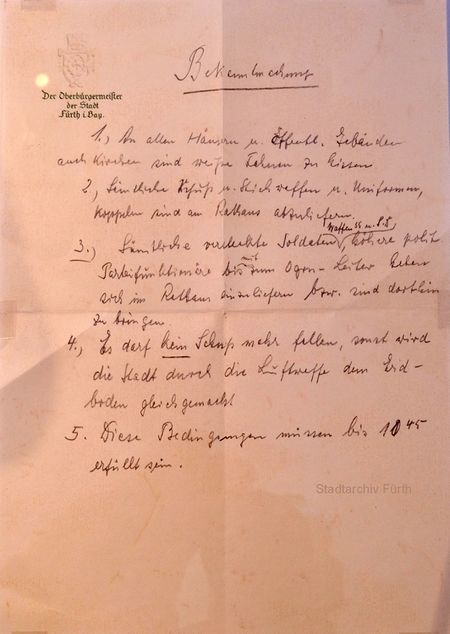 Der Oberbürgermeister
der Stadt
Fürth i. Bay.
Bekanntmachung
1., An allen Häusern u. öffentl. Gebäuden
auch Kirchen sind weiße Fahnen zu hissen
2., Sämtliche Schuß u. Stichwaffen u. Uniformen,
Koppeln sind am Rathaus abzuliefern.
3., Sämtliche versteckte Soldaten, Waffen SS u. S.D., höhere polit
Parteifunktionäre bis zum Ogr.-Leiter haben
sich im Rathaus einzuliefern bzw. sind dorthin
zu bringen.
4., Es darf kein Schuß mehr fallen, sonst wird
die Stadt durch die Luftwaffe dem Erd-
boden gleichgemacht
5. Diese Bedingungen müssen bis 10 45
erfüllt sein.
Stadtarchiv Fürth